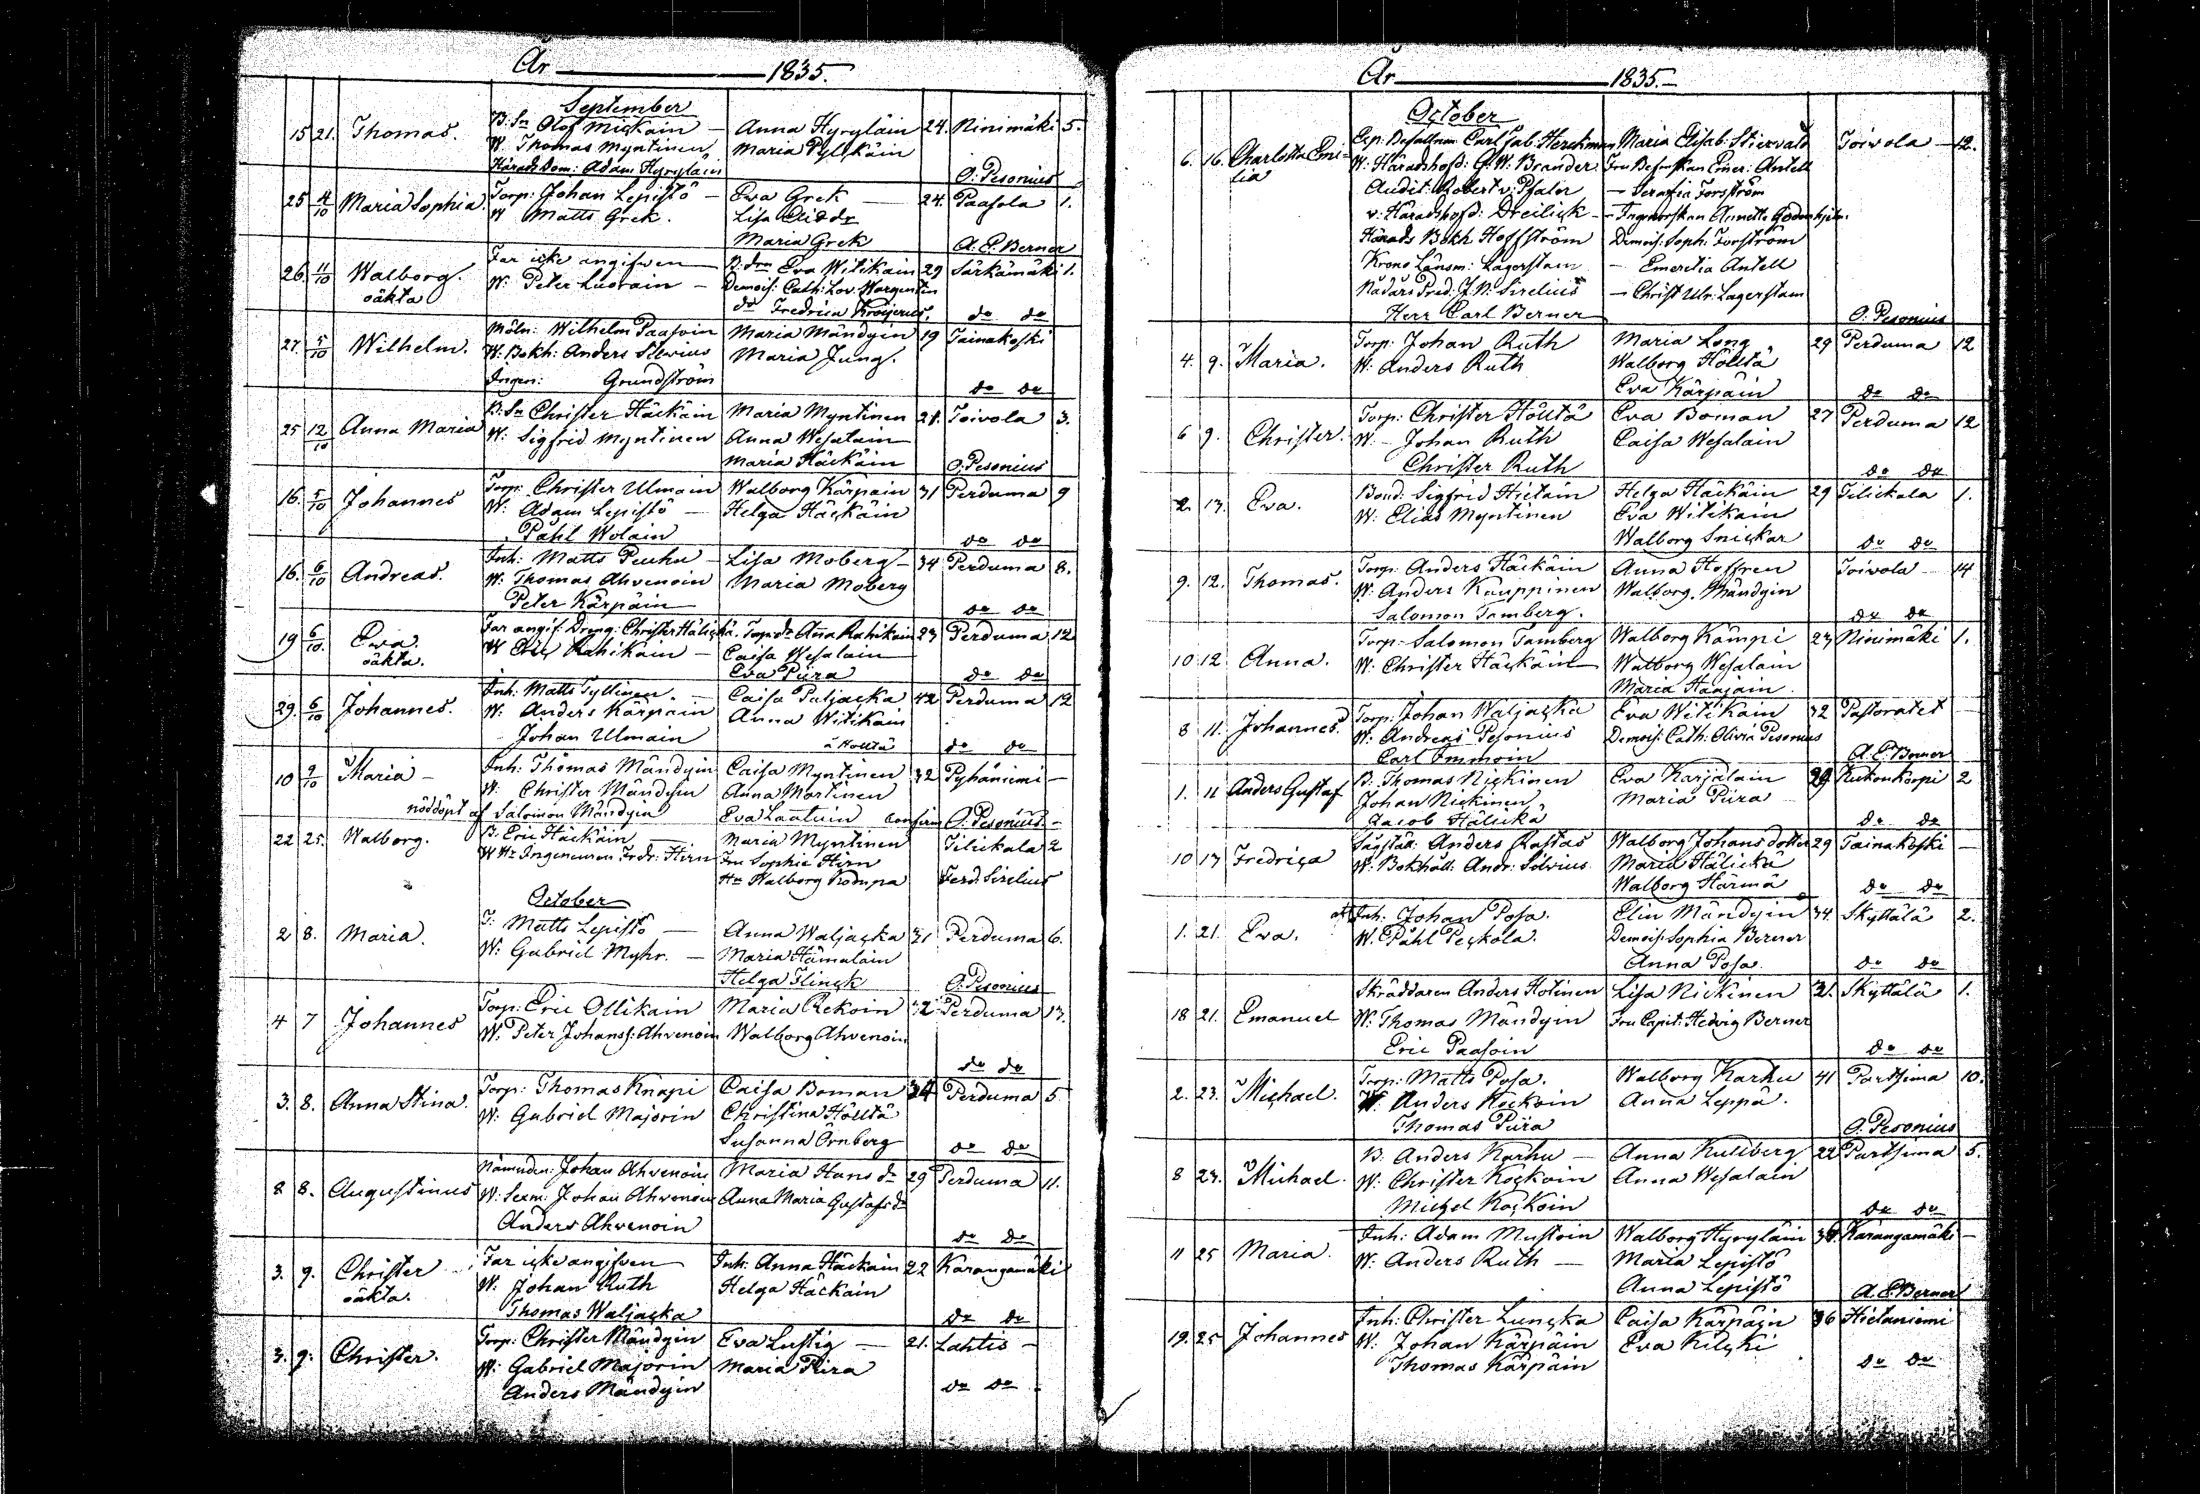 År 1835.
September
15 21. Thomas. B: Sn Olof Mickäin — Anna Hyryläin 24. Ninimäki 5.
W. Thomas Myntinen Maria Pylckäin
Härads Dom: Adam Hyryläin O: Pesonius
25 4/10 Maria Sophia. Torp: Johan Lepistö — Eva Grek — 24. Paasola 1.
W Matts Grek. Lisa
Maria Grek A. E. Berner
26. 11/10 Walborg. Far icke angifven B: drn Eva Witikain 29 Särkämäki 1.
oäkta W: Peter Luorain — Demois: Cath: Lov. Wargentin
do Fredrica Kröijerus. do do
27. 5/10 Wilhelm. Möln: Wilhelm Paasoin Maria Mändyin 19 Tainakoski
W. Bokh: Anders Silvius Maria Jung.
Ingen: Grundström do do
25 12/10 Anna Maria B: Sn Christer Häckäin Maria Myntinen 21. Toivola 3.
W: Sigfrid Myntinen Anna Wesalain
Maria Häckäin O: Pesonius
16. 5/10 Johannes Torp: Christer Ulmain Walborg Kärpäin 31 Perduma 9
W: Adam Lepistö — Helga Häckäin
Påhl Wolain do do
16. 6/10 Andreas. Inh: Matts Peuhu — Lisa Moberg — 34 Perduma 8.
W: Thomas Ahvenoin Maria Moberg
Peter Kärpäin do do
19 6/10. Eva. Far angif: Dreng: Christer Hälickä. Torp: dr Anna Rahikain 23 Perduma 12
oäkta. W Eric Rahikain — Caisa Wesalain
Eva Pura do do
29. 6/10 Johannes. Inh: Matts Tyllinen. — Caisa Paljacka 42 Perduma 12
W: Anders Kärpäin Anna Witikain
Johan Ulmain å Hollta do do
10 9/10 Maria — Inh: Thomas Mändyin Caisa Myntinen 32 Pyhäniemi —
W: Christer Mändyin Anna Martinen
nöddöpt af Salomon Mändyin Eva Laatuin confirm O. Pesonius —
22 25. Walborg. B. Eric Häckäin Maria Myntinen Tilickala 2
W Hr Ingenieuren Fredr: Hirn Fru Sophia Hirn
Walborg Ferd. Sirelius
October
2 8. Maria. T: Matts Lepistö — Anna Waljacka 31 Perduma 6.
W: Gabriel Myhr. — Maria Hämälain
Helga Flinck O. Pesonius
4 7 Johannes Torp: Eric Ollikain Maria Rekoin Perduma 13.
W. Peter Johanss: Ahvenoin Walborg Ahvenoin
do do
3. 8. Anna Stina. Torp: Thomas Knapi Caisa Boman 34 Perduma 5
W: Gabriel Majorin Christina Hölltä
Susanna Örnberg do do
8 8. Augustinus Nämnden: Johan Ahvenoin Maria Hans dr 29 Perduma 11.
W: Sexm: Johan Ahvenoin Anna Maria Gustafs dr
Anders Ahvenoin do do
3. 9. Christer Far icke angifven Inh: Anna Häckäin 22 Karangamäki
oäkta. W. Johan Ruth Helga Häckäin
Thomas Waljacka do do
3. 9. Christer. Torp: Christer Mändyin Eva Lustig — 21. Lahtis —
W: Gabriel Majorin Maria Pura
Anders Mändyin do do
År 1835.
October
6. 16. Charlotta Emi- Exp: Befallnm: Carl Jab: Herckman Maria Elisab: Stiervald Toivola — 12.
lia W: Häradshöfd: G. W. Brander Fru Befnskan Emer: Antell
Audit: Robert v: Pfaler — Serafia Forsström
v: Häradshöfd: Dreilick — Ingeniorskan Annette Godenhjelm.
Härads Bokh Hoffström Demois: Soph: Forström
Krono Länsm: Lagerstam — Emerentia Antell
Nådårs Pred: J. N: Sirelius — Christ Ulr: Lagerstam
Herr Carl Berner O. Pesonius
4. 9. Maria. Torp: Johan Ruth Maria Long 29 Perduma 12
W: Anders Ruth Walborg Hölltä
Eva Kärpäin do do
6 9. Christer. Torp: Christer Hölltä Eva Boman 27 Perduma 12
W. — Johan Ruth Caisa Wesalain
Christer Ruth do do
2. 13. Eva. Bond: Sigfrid Hietain Helga Häckäin 29 Tilickala 1.
W: Elias Myntinen Eva Witikain
Walborg Snickar do do
9. 12. Thomas. Torp: Anders Häckäin Anna Hoffren Toivola — 14
W: Anders Kauppinen Walborg Mändyin
Salomon Tamberg. do do
10 12 Anna. Torp: Salomon Tamberg Walborg Kämpi 23 Ninimäki 1.
W. Christer Häckäin Walborg Wesalain
Maria Häcjäin.
8 11. Johannes. Torp: Johan Waljacka Eva Witikain 32 Pastoratet —
W: Andreas Pesonius Demois: Cath: Olivia Pesonius
Carl Immoin A. E. Berner
1. 11 Anders Gustaf B. Thomas Nickinen Eva Karjalain 29 Kukonkorpi 2
Johan Nickinen Maria Pura
Jacob Hälickä do do
10 17 Fredrica Anders Rastas Walborg Johans dotter 29 Tainakoski —
W. Bokhåll: Andr: Silvius. Maria Hälickä
Walborg Härmä do do
1. 21. Eva. Inh: Johan Posa. Elin Mändyin 34. Skyttälä 2.
W. Påhl Peckola. Demois: Sophia Berner
Anna Posa do do
18 21. Emanuel Skräddaren Anders Hotinen Lisa Nickinen 21. Skyttälä 1.
W: Thomas Mändyin Fru Capit: Hedvig Berner
Eric Paasoin do do
2. 23. Michael. Torp: Matts Posa. Walborg Karhu 41 Purtsima 10.
W. Anders Kockoin Anna Leppä.
Thomas Pura O. Pesonius
8 23. Michael. B. Anders Karhu — Anna Kullberg 22 Purtsima 5.
W: Christer Kockoin Anna Wesalain
Michel Kockoin do do
11 25 Maria. Inh: Adam Mustoin Walborg Hyryläin Karangamäki —
W: Anders Ruth — Maria Lepistö
Anna Lepistö A. E. Berner
19. 25 Johannes Inh: Christer Luncka Caisa Kärpäin 36 Hietaniemi
W: Johan Kärpäin Eva Kilcki
Thomas Kärpäin do do